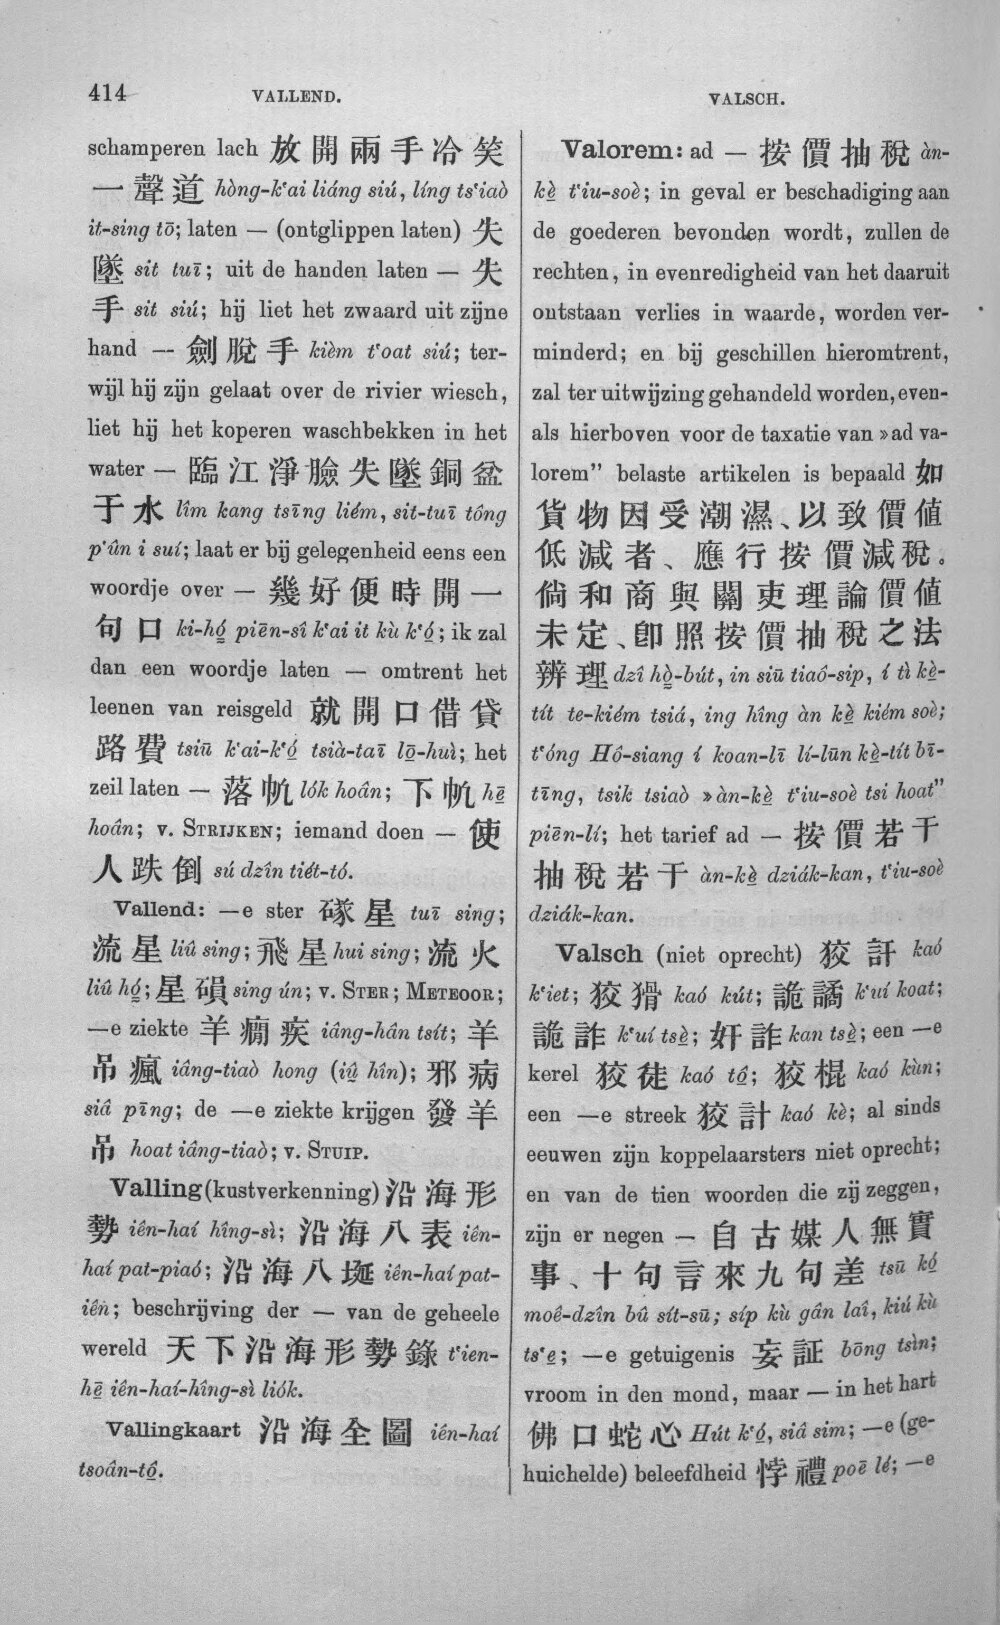 414
VALLEND.
VALSCH.
schamperen lach 放開兩手冷笑
一聲道 hòng-k‘ai liáng siú, líng ts‘iaò
it-sing tō; laten — (ontglippen laten) 失
墜 sit tuī; uit de handen laten — 失
手 sit siú; hij liet het zwaard uit zijne
hand — 劍脫手 kièm t‘oat siú; ter-
wijl hij zijn gelaat over de rivier wiesch,
liet hij het koperen waschbekken in het
water — 臨江淨臉失墜銅盆
于水 lîm kang tsīng liém, sit-tuī tông
p‘ûn i suí; laat er bij gelegenheid eens een
woordje over — 幾好便時開一
句口 ki-hó̤ piēn-sî k‘ai it kù k‘ó̤; ik zal
dan een woordje laten — omtrent het
leenen van reisgeld 就開口借貸
路費 tsiū k‘ai-k‘ó̤ tsià-taī lō̤-huì; het
zeil laten — 落帆 lók hoân; 下帆 hē̤
hoân; v. STRIJKEN; iemand doen — 使
人跌倒 sú dzîn tiét-tó.
Vallend: —e ster 磙星 tuī sing;
流星 liû sing; 飛星 hui sing; 流火
liû hó̤; 星磒 sing ún; v. STER; METEOOR;
—e ziekte 羊癇疾 iâng-hân tsít; 羊
吊瘋 iâng-tiaò hong (iṳ̂ hîn); 邪病
siâ pīng; de —e ziekte krijgen 發羊
吊 hoat iâng-tiaò; v. STUIP.
Valling (kustverkenning) 沿海形
勢 iên-haí hîng-sì; 沿海八表 iên-
haí pat-piaó; 沿海八埏 iên-haí pat-
iên; beschrijving der — van de geheele
wereld 天下沿海形勢錄 t‘ien-
hē̤ iên-haí-hîng-sì liók.
Vallingkaart 沿海全圖 iên-haí
tsoân-tô̤.
Valorem: ad — 按價抽稅 àn-
kè̤ t‘iu-soè; in geval er beschadiging aan
de goederen bevonden wordt, zullen de
rechten, in evenredigheid van het daaruit
ontstaan verlies in waarde, worden ver-
minderd; en bij geschillen hieromtrent,
zal ter uitwijzing gehandeld worden, even-
als hierboven voor de taxatie van »ad va-
lorem” belaste artikelen is bepaald 如
貨物因受潮濕、以致價値
低減者、應行按價減稅。
倘和商與關吏理論價値
未定、卽照按價抽稅之法
辨理 dzî hò̤-bút, in siū tiaô-sip, í tì kè̤-
tít te-kiém tsiá, ing hîng àn kè̤ kiém soè;
t‘óng Hô-siang í koan-lī lí-lūn kè̤-tít bī-
tīng, tsik tsiaò »àn-kè̤ t‘iu-soè tsi hoat”
piēn-lí; het tarief ad — 按價若干
抽稅若干 àn-kè̤ dziák-kan, t‘iu-soè
dziák-kan.
Valsch (niet oprecht) 狡訐 kaó
k‘iet; 狡猾 kaó kút; 詭譎 k‘uí koat;
詭詐 k‘uí tsè̤; 奸詐 kan tsè̤; een —e
kerel 狡徒 kaó tô̤; 狡棍 kaó kùn;
een —e streek 狡計 kaó kè; al sinds
eeuwen zijn koppelaarsters niet oprecht;
en van de tien woorden die zij zeggen,
zijn er negen — 自古媒人無實
事、十句言來九句差 tsū kó̤
moê-dzîn bû sít-sū; síp kù gân laî, kiú kù
ts‘e̤; —e getuigenis 妄証 bōng tsìn;
vroom in den mond, maar — in het hart
佛口蛇心 Hút k‘ó̤, siâ sim; —e (ge-
huichelde) beleefdheid 悖禮 poē lé; —e